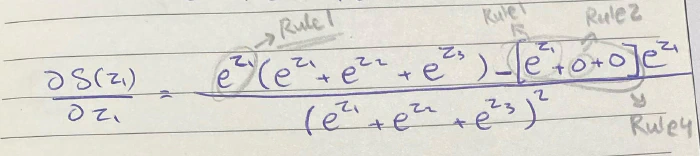 Rule1 Rule1 Rule2
∂S(z₁)/∂z₁ = (e^z₁(e^z₁ + e^z₂ + e^z₃) - [e^z₁ + 0 + 0]e^z₁)/(e^z₁ + e^z₂ + e^z₃)²
Rule4